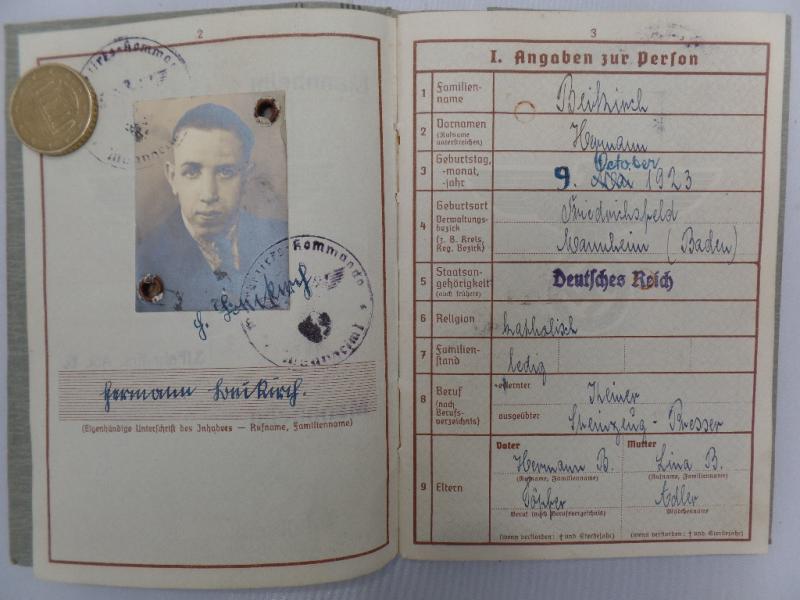 2
Mannheim
H. Beikirch
Hermann Beikirch.
(Eigenhändige Unterschrift des Inhabers — Rufname, Familienname)
3
I. Angaben zur Person
1 Familien-
name
Beikirch
2 Vornamen
(Rufname
unterstreichen)
Hermann
3 Geburtstag,
-monat,
-jahr
October
9. 1923
4 Geburtsort
Verwaltungs-
bezirk
(z. B. Kreis,
Reg. Bezirk)
Friedrichsfeld
Mannheim (Baden)
5 Staatsan-
gehörigkeit
(auch frühere)
Deutsches Reich
6 Religion
katholisch
7 Familien-
stand
ledig
8 Beruf
(nach
Berufs-
verzeichnis)
erlernter Keiner
ausgeübter Steinzeug-Presser
9 Eltern
Vater Mutter
Hermann B. Lina B.
(Rufname, Familienname) (Rufname, Familienname)
Töpfer Adler
Beruf (nach Berufsverzeichnis) Mädchenname
(wenn verstorben: † und Sterbejahr) (wenn verstorben: † und Sterbejahr)